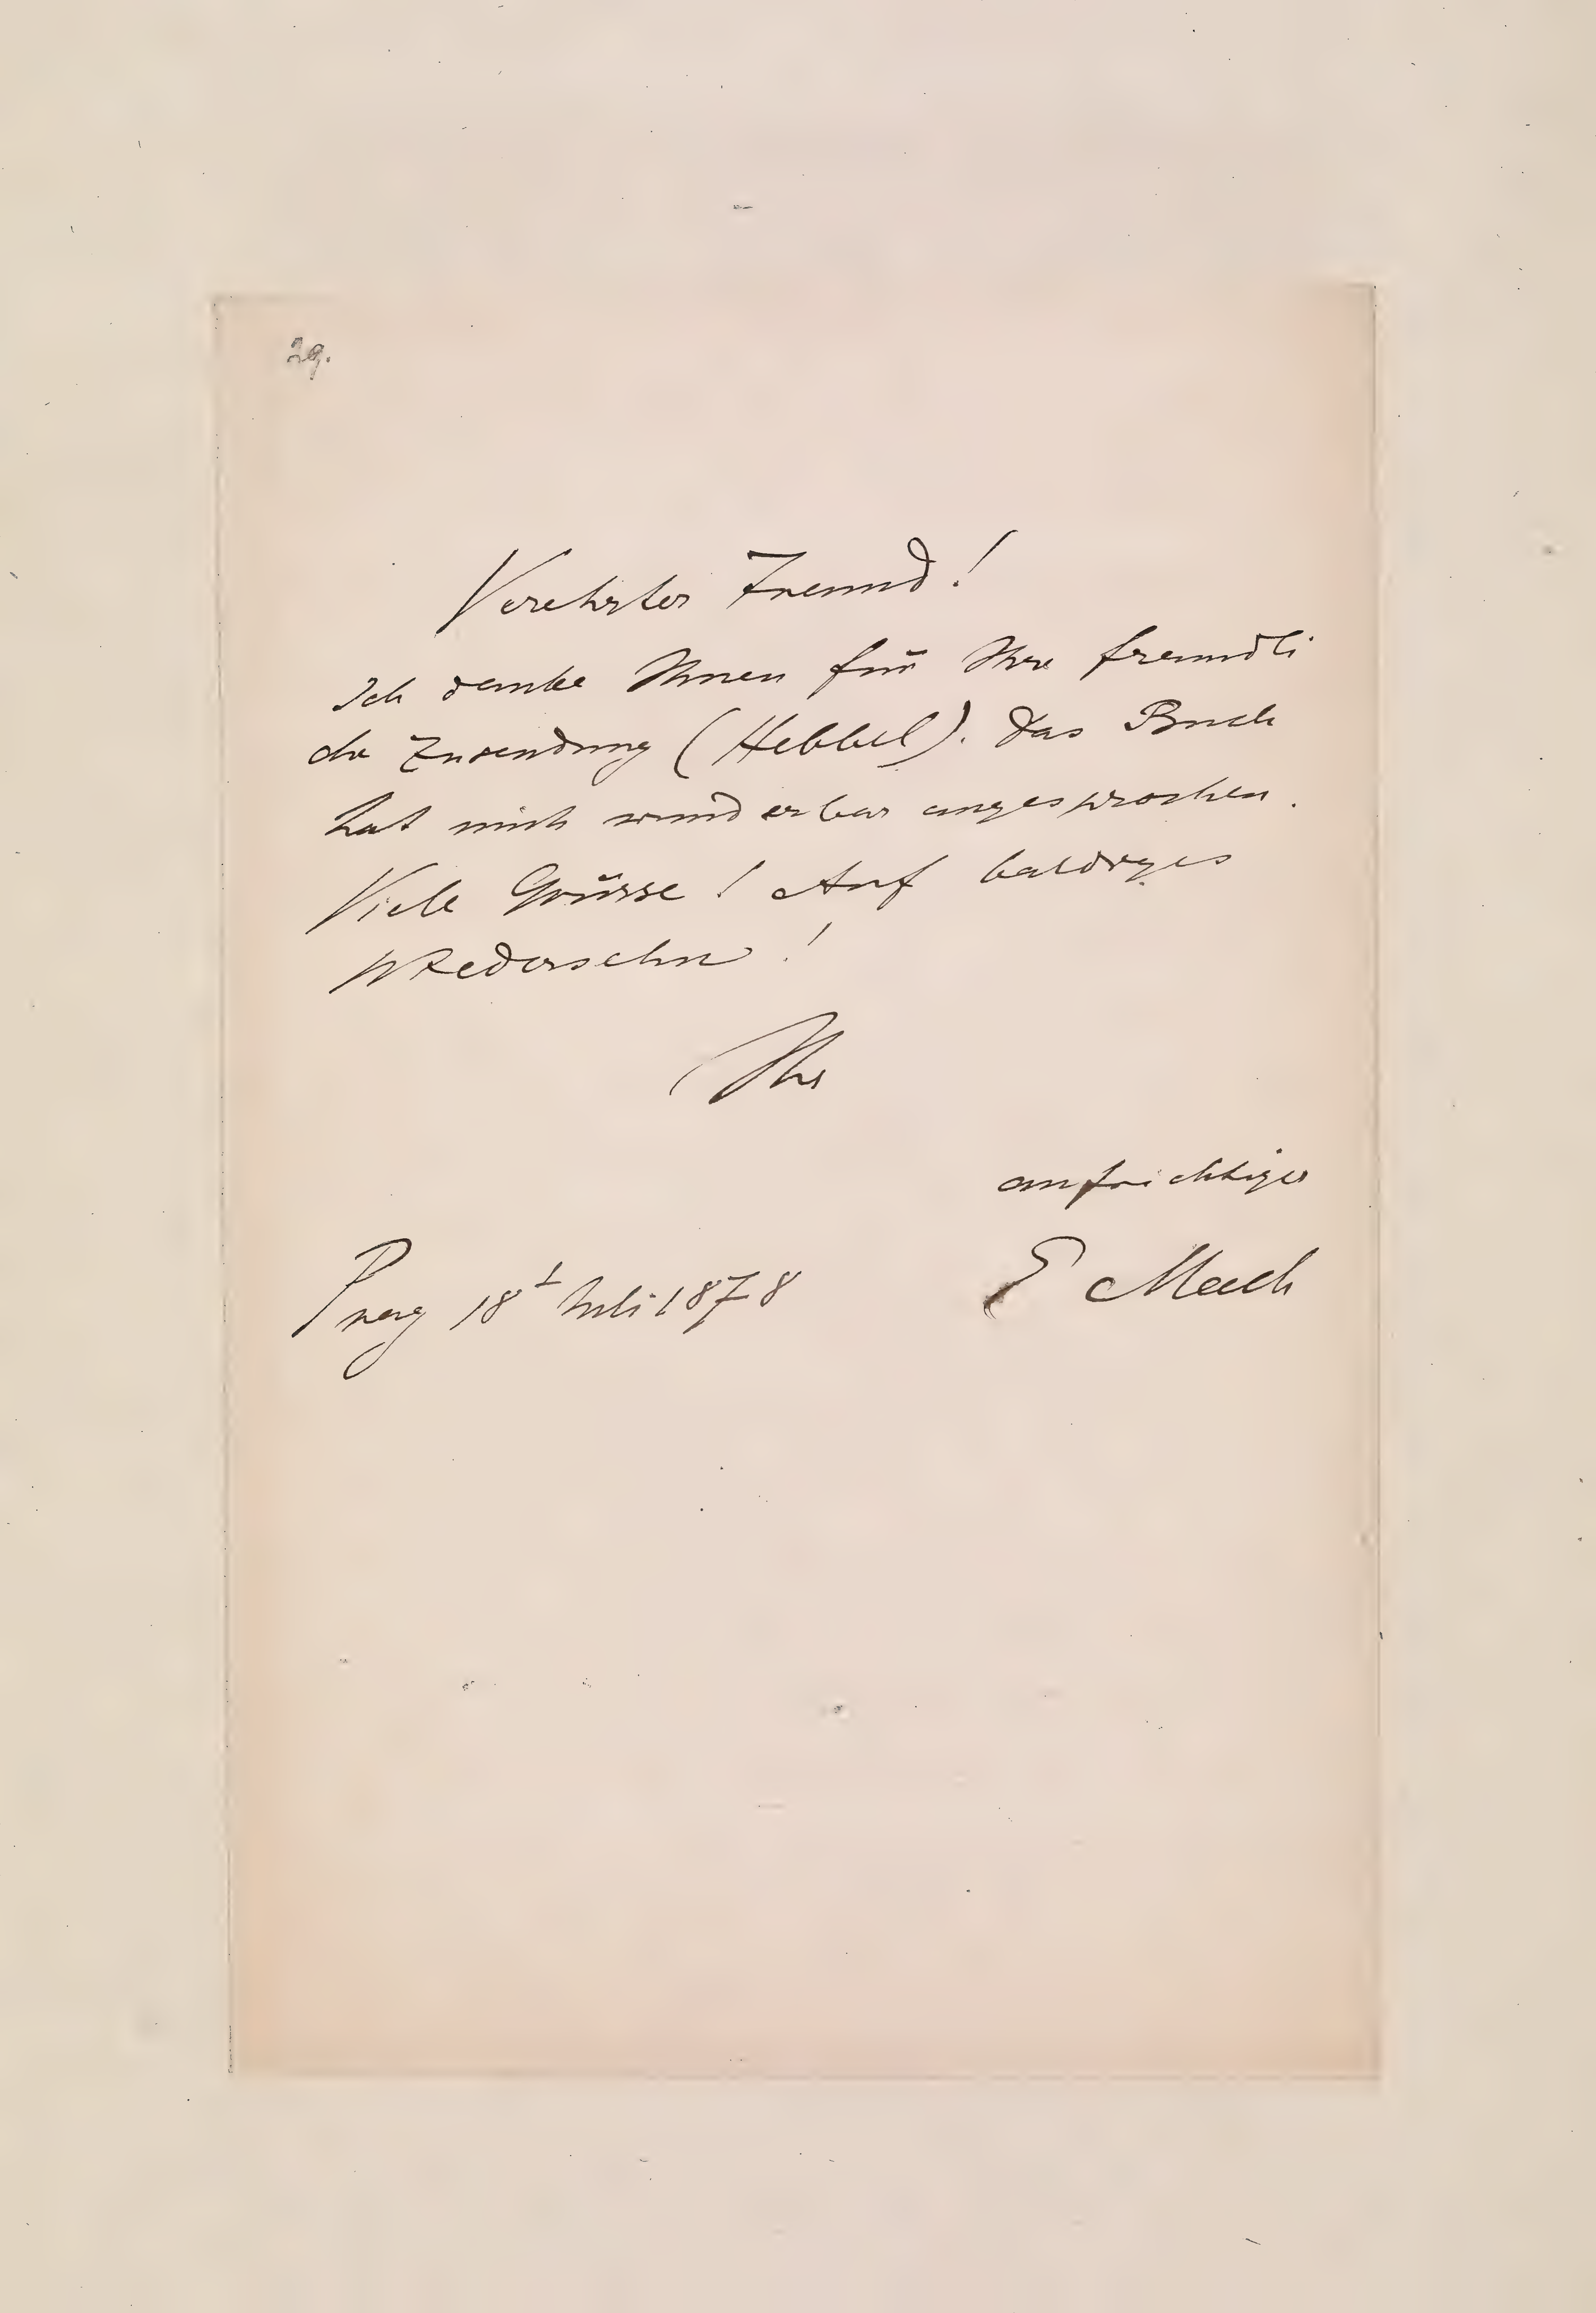 29.
Verehrter Freund!
Ich danke Ihnen für Ihre freundli
che Zusendung (Hebbel). Das Buch
hat mich wunderbar angesprochen.
Viele Grüsse! Auf baldiges
Wiedersehn!
Ihr
aufrichtiger
Prag 18 Juli 1878
E Mach